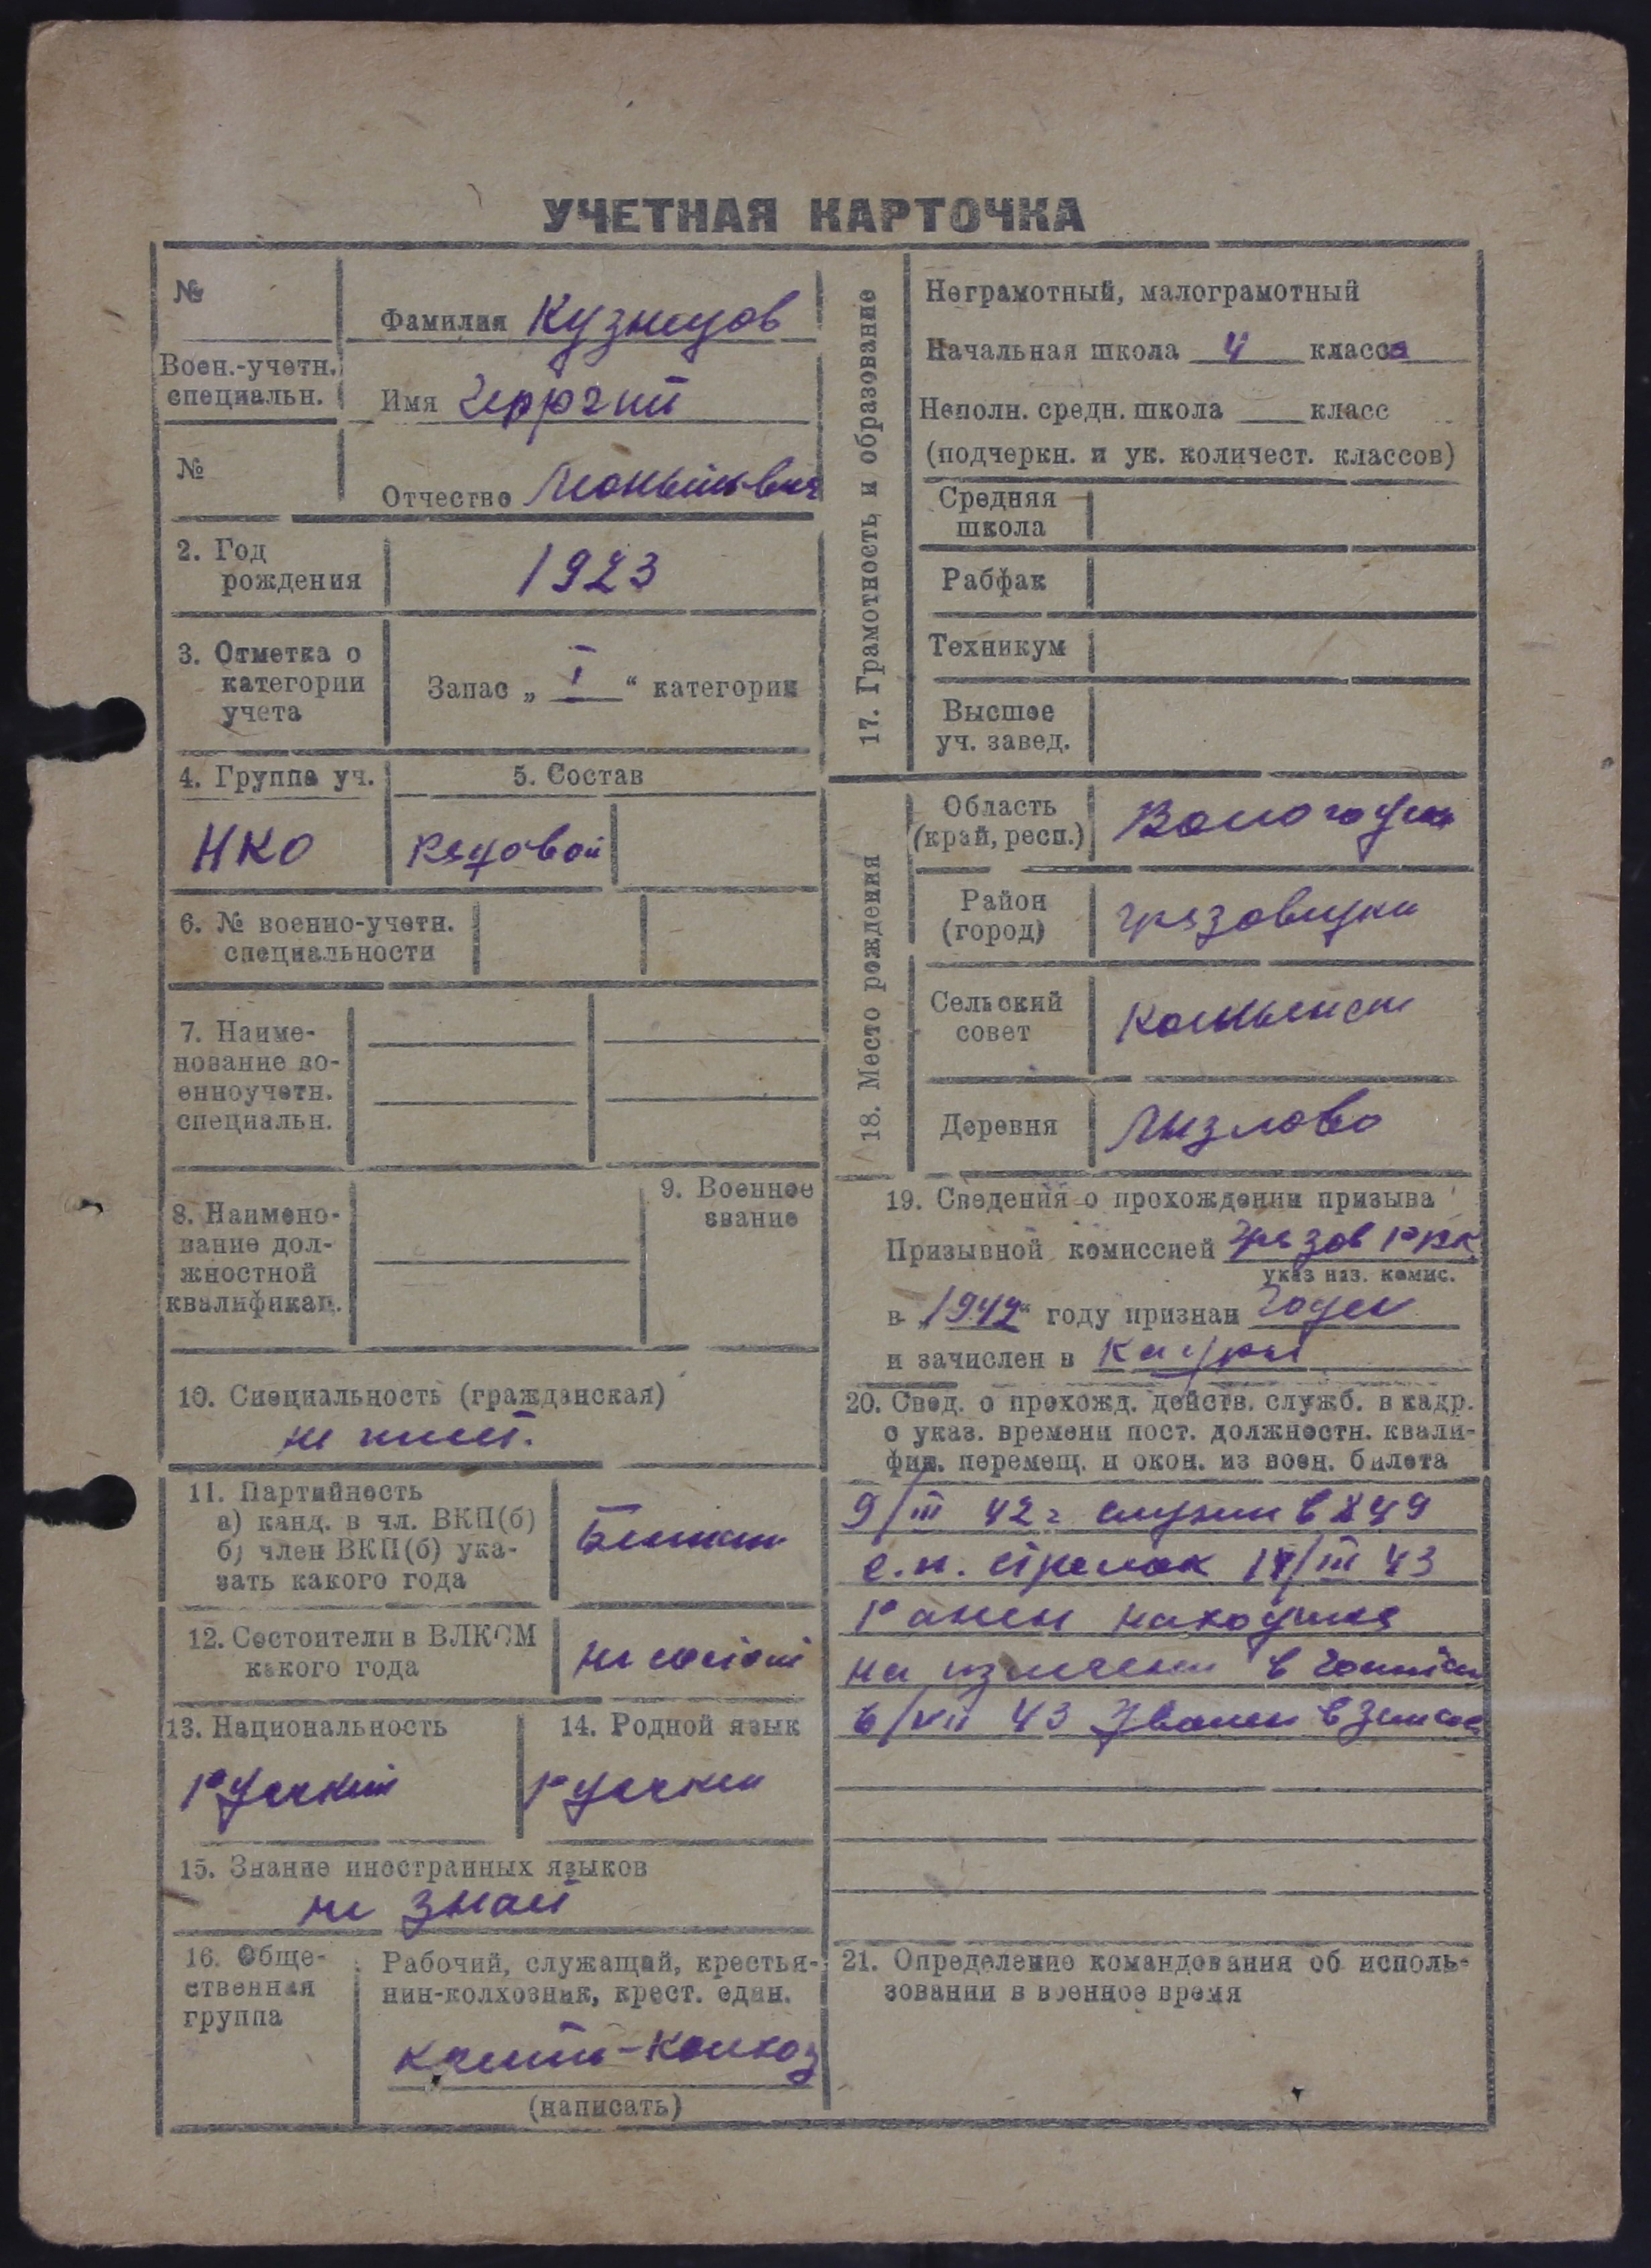 УЧЕТНАЯ КАРТОЧКА
№
Фамилия Кузнецов
Воен.-учетн.
специальн.
Имя Георгий
№
Отчество
2. Год
рождения
1923
3. Отметка о
категории
учета
Запас „ I “ категории
4. Группа уч.
5. Состав
НКО
Рядовой
6. № военно-учетн.
специальности
7. Наиме-
нование во-
енноучетн.
специальн.
8. Наимено-
вание дол-
жностной
квалификац.
9. Военное
звание
10. Специальность (гражданская)
не имеет.
11. Партийность
а) канд. в чл. ВКП(б)
б) член ВКП(б) ука-
зать какого года
12. Состоители в ВЛКСМ
какого года
не состоит
13. Национальность
Русский
14. Родной язык
Русский
15. Знание иностранных языков
не знает
16. Обще-
ственная
группа
Рабочий, служащий, крестья-
нин-колхозник, крест. един.
(написать)
17. Грамотность и образование
Неграмотный, малограмотный
Начальная школа 4 класса
Неполн. средн. школа класс
(подчеркн. и ук. количест. классов)
Средняя
школа
Рабфак
Техникум
Высшее
уч. завед.
18. Место рождения
Область
(край, респ.)
Вологодск
Район
(город)
Грязовецкий
Сельский
совет
Деревня
19. Сведения о прохождении призыва
Призывной комиссией Грязов РВК
указ наз. комис.
в „1942“ году признан годен
и зачислен в Кадры
20. Свед. о прохожд. действ. служб. в кадр.
с указ. времени пост. должностн. квали-
фик. перемещ. и окон. из воен. билета
9/III 42 г служил в 849
с.п. стрелок 17/III 43
Ранен находился
на излечении в госпитал
6/VII 43 Уволен в запас
21. Определение командования об исполь-
зовании в военное время